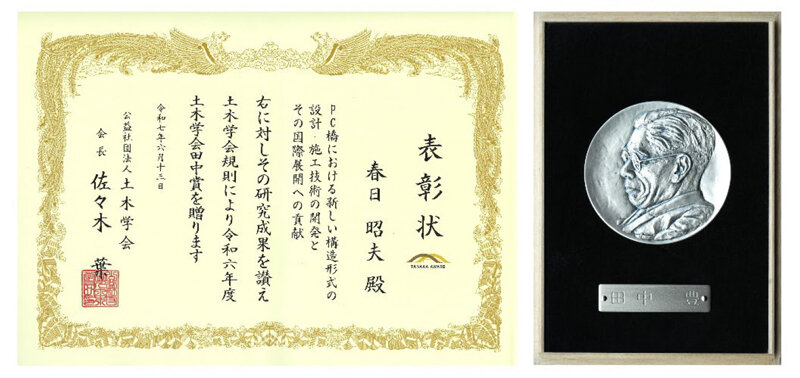 表彰状
TANAKA AWARD
春日 昭夫 殿
PC橋における新しい構造形式の
設計・施工技術の開発と
その国際展開への貢献
右に対しその研究成果を讃え
土木学会規則により令和六年度
土木学会田中賞を贈ります
令和七年六月十三日
公益社団法人 土木学会
会長 佐々木 葉
田中 豊